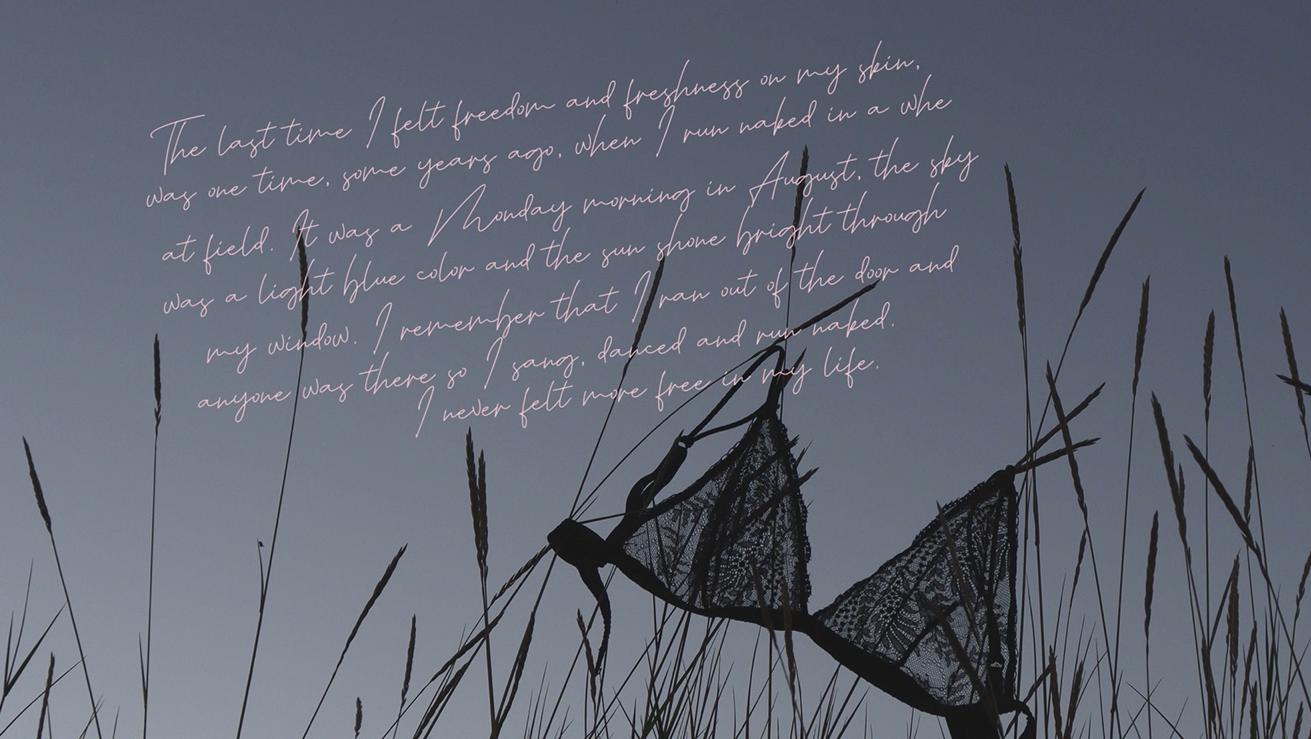 The last time I felt freedom and freshness on my skin,
was one time, some years ago, when I run naked in a whe
at field. It was a Monday morning in August, the sky
was a light blue color and the sun shone bright through
my window. I remember that I ran out of the door and
anyone was there, so I sang, danced and run naked.
I never felt more free in my life.